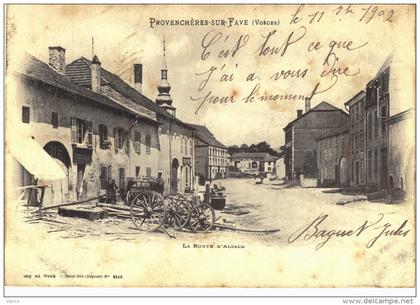 PROVENCHÈRES-SUR-FAVE (VOSGES)
le 11 1902
C'est tout ce que
j'ai a vous dire
pour le moment
LA ROUTE D'ALSACE
Imp. ad. Weick — Saint-Dié (Déposé) Nº
Baguet Jules
© delcampe.net